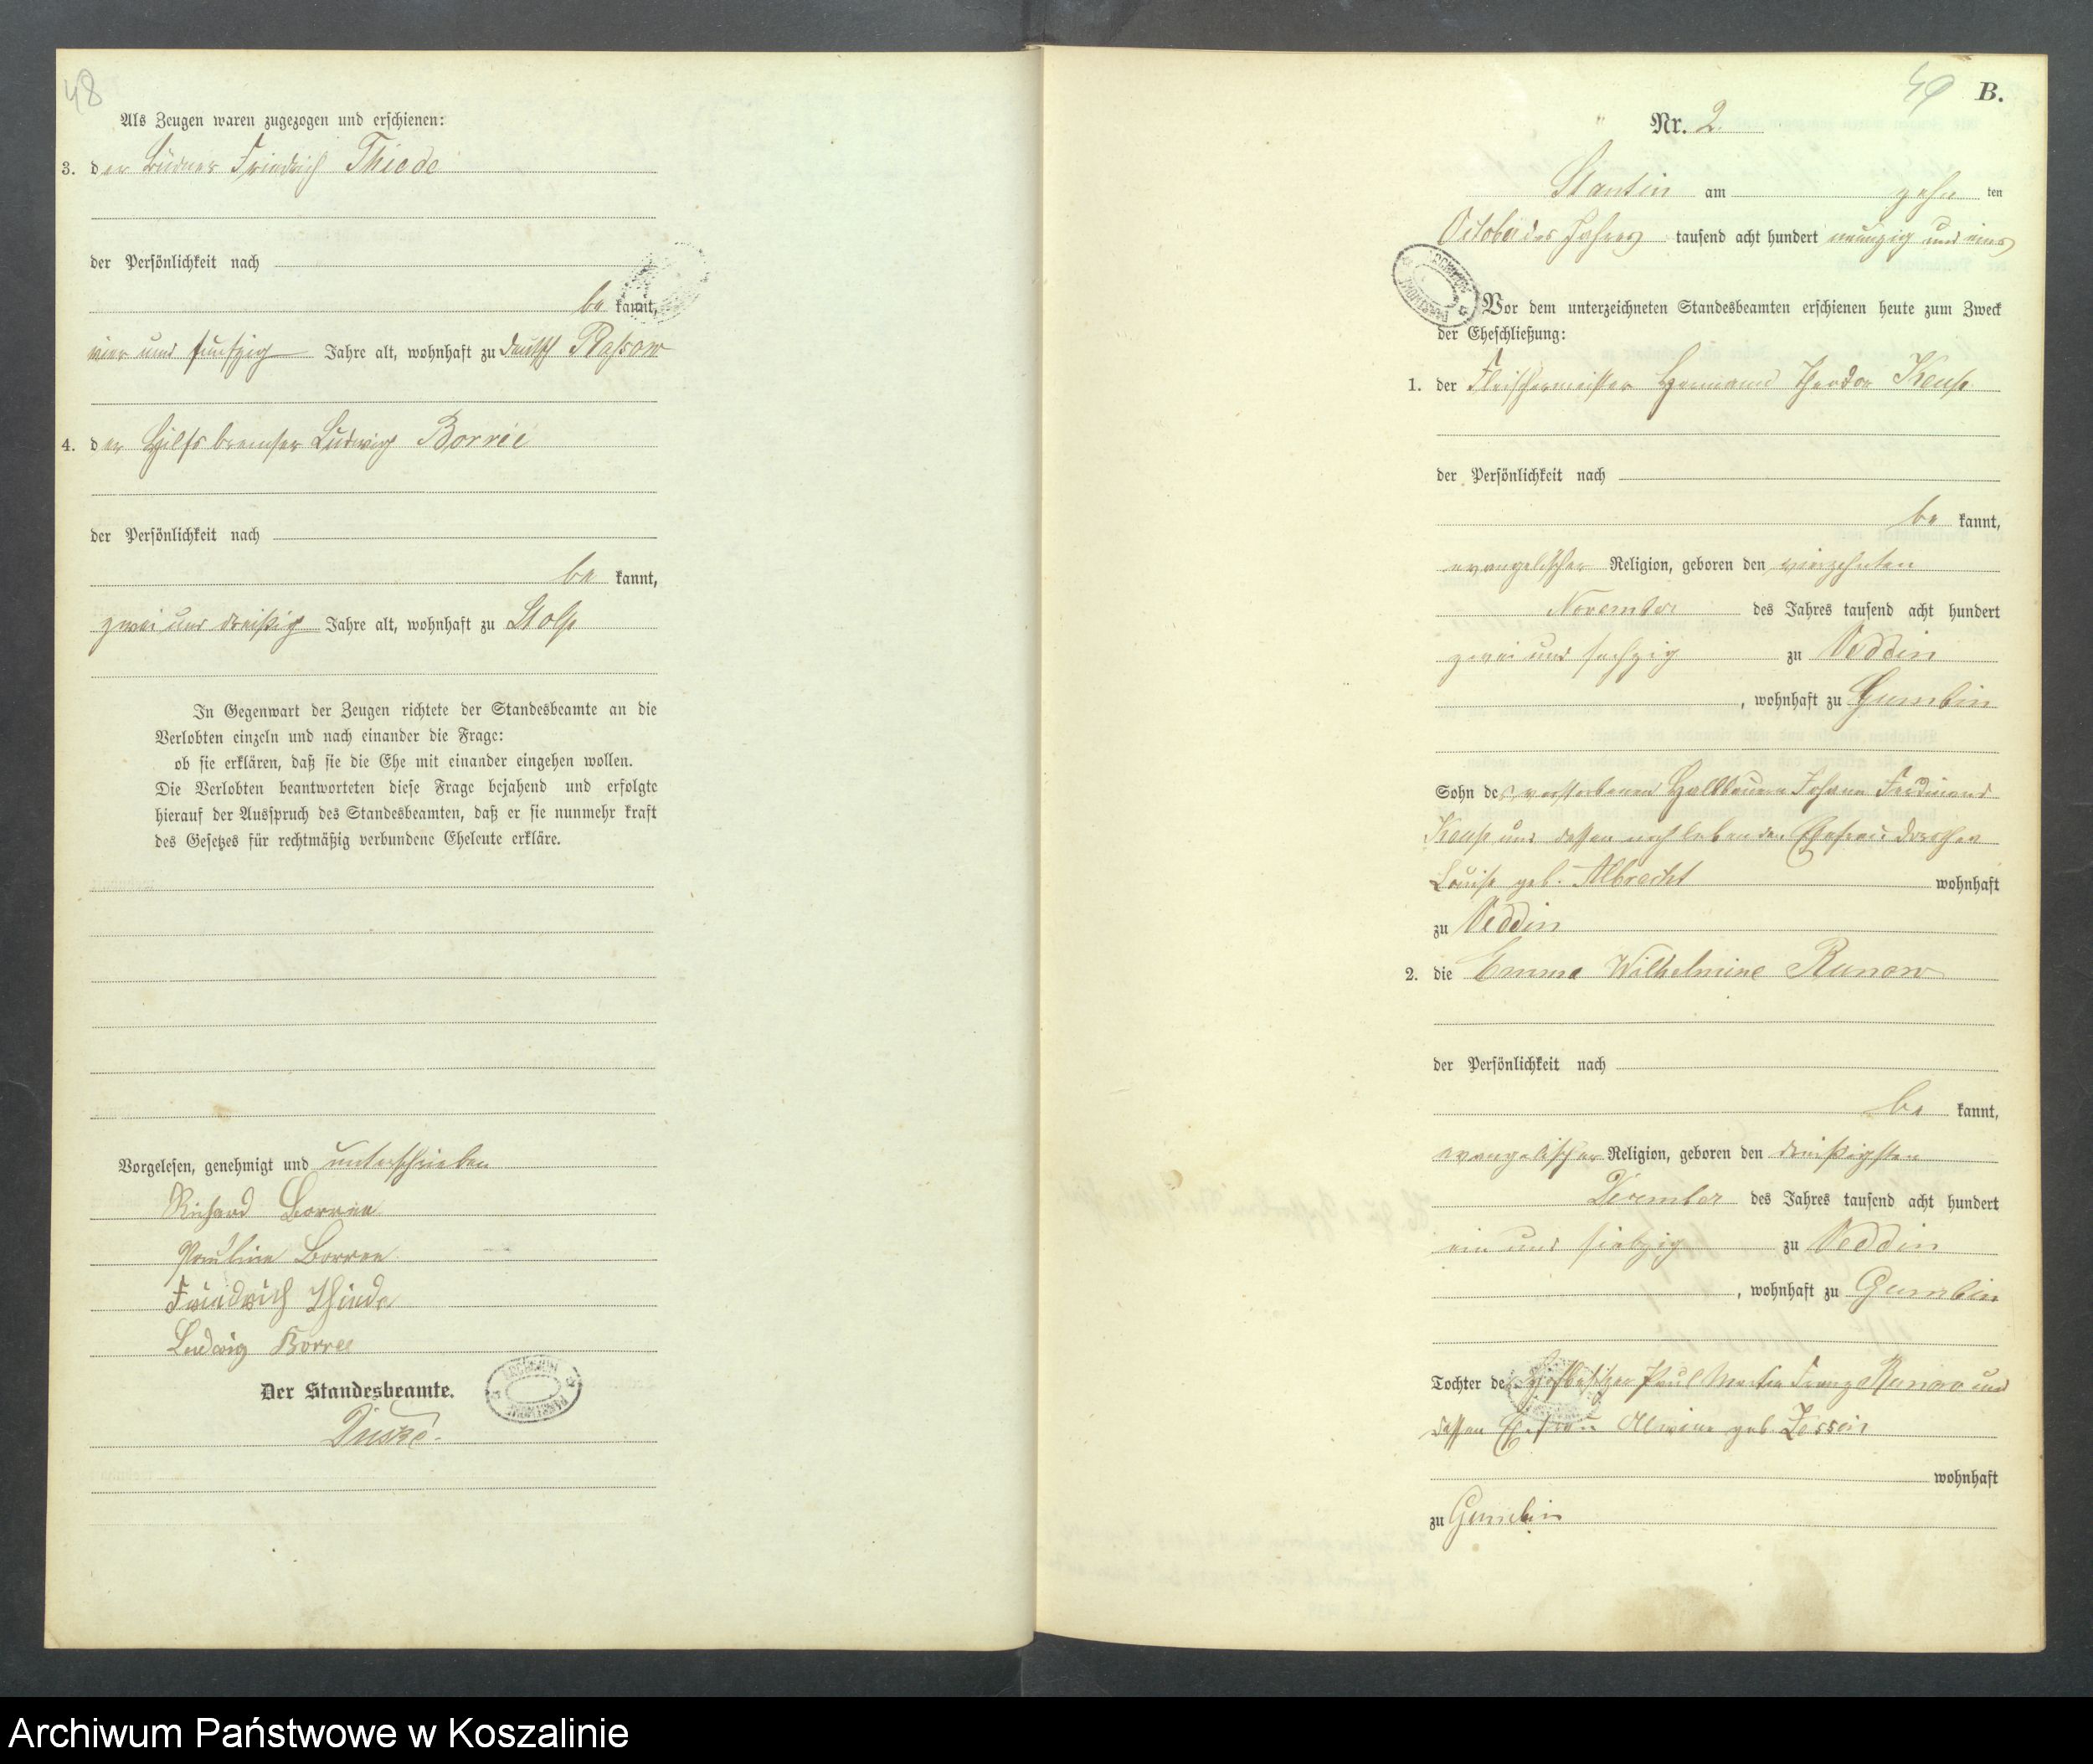 48
Als Zeugen waren zugezogen und erschienen:
3. der Büdner Friedrich Thiede
der Persönlichkeit nach
be kannt,
vier und fünfzig Jahre alt, wohnhaft zu deutsch Plassow
4. der Hilfsbremser Ludwig Borrée
der Persönlichkeit nach
be kannt,
zwei und dreißig Jahre alt, wohnhaft zu Stolp
In Gegenwart der Zeugen richtete der Standesbeamte an die
Verlobten einzeln und nach einander die Frage:
ob sie erklären, daß sie die Ehe mit einander eingehen wollen.
Die Verlobten beantworteten diese Frage bejahend und erfolgte
hierauf der Ausspruch des Standesbeamten, daß er sie nunmehr kraft
des Gesetzes für rechtmäßig verbundene Eheleute erkläre.
Vorgelesen, genehmigt und unterschrieben
Richard Borree
Pauline Borree
Friedrich Thiede
Ludwig Borree
Der Standesbeamte.
49
B.
Nr. 2.
Stantin am zehn ten
October des Jahres tausend acht hundert neunzig und eins
Vor dem unterzeichneten Standesbeamten erschienen heute zum Zweck
der Eheschließung:
1. der Fleischermeister Hermann Theodor
der Persönlichkeit nach
be kannt,
evangelischer Religion, geboren den vierzehnten
November des Jahres tausend acht hundert
zwei und sechzig zu Veddin
, wohnhaft zu Gumbin
Sohn des verstorbenen Halbbauern Johann Ferdinand
und dessen nachlebenden Ehefrau Dorothea
Louise geb. Albrecht wohnhaft
zu Veddin
2. die Emma Wilhelmine Runow
der Persönlichkeit nach
be kannt,
evangelischer Religion, geboren den dreißigsten
December des Jahres tausend acht hundert
ein und siebzig zu Veddin
, wohnhaft zu Gumbin
Tochter des Hofbesitzer Paul Martin Franz Runow und
dessen Ehefrau Alwine geb. Zessin
wohnhaft
zu Gumbin
Archiwum Państwowe w Koszalinie